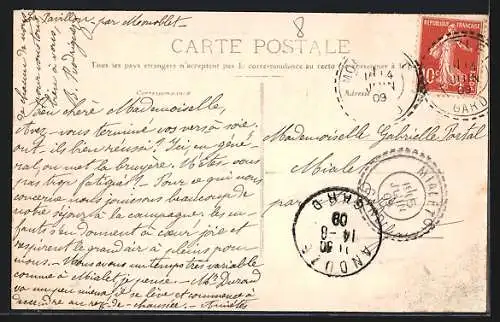 Pavillon par Monoblet
8
CARTE POSTALE
Tous les pays étrangers n'acceptent pas la correspondance au
Correspondance
Adresse
RÉPUBLIQUE FRANÇAISE
10
GARD
14
JUIN
09
Bien chère Mademoiselle,
Avez-vous terminé vos vers à soie,
ont ils bien réussi? Ici, en géné-
ral, on met la bruyère. N'êtes vous
pas trop fatiguée? Pour ce qui nous
concerne nous jouissons beaucoup de
notre séjour à la campagne; les en-
fants s'en donnent à cœur joie et
respirent le grand air à pleins pou-
mons. Nous avons un temps très variable
comme à Mialet je pense. Mr Durand
va un peu mieux, il se lève et commence à
descendre au rez-de-chaussée.
de chacun de nous
pour vous tous
bien à vous,
B. Rodriguez
Mademoiselle Gabrielle Portal
Mialet
par
MIALET
15
JUIN
09
GARD
ANDUZE
GARD
11 30
14-6
09